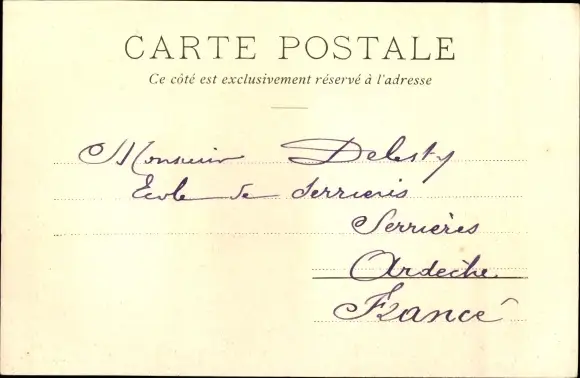 CARTE POSTALE
Ce côté est exclusivement réservé à l'adresse
Monsieur Delesty
Ecole de Serrieres
Serrières
Ardèche
France